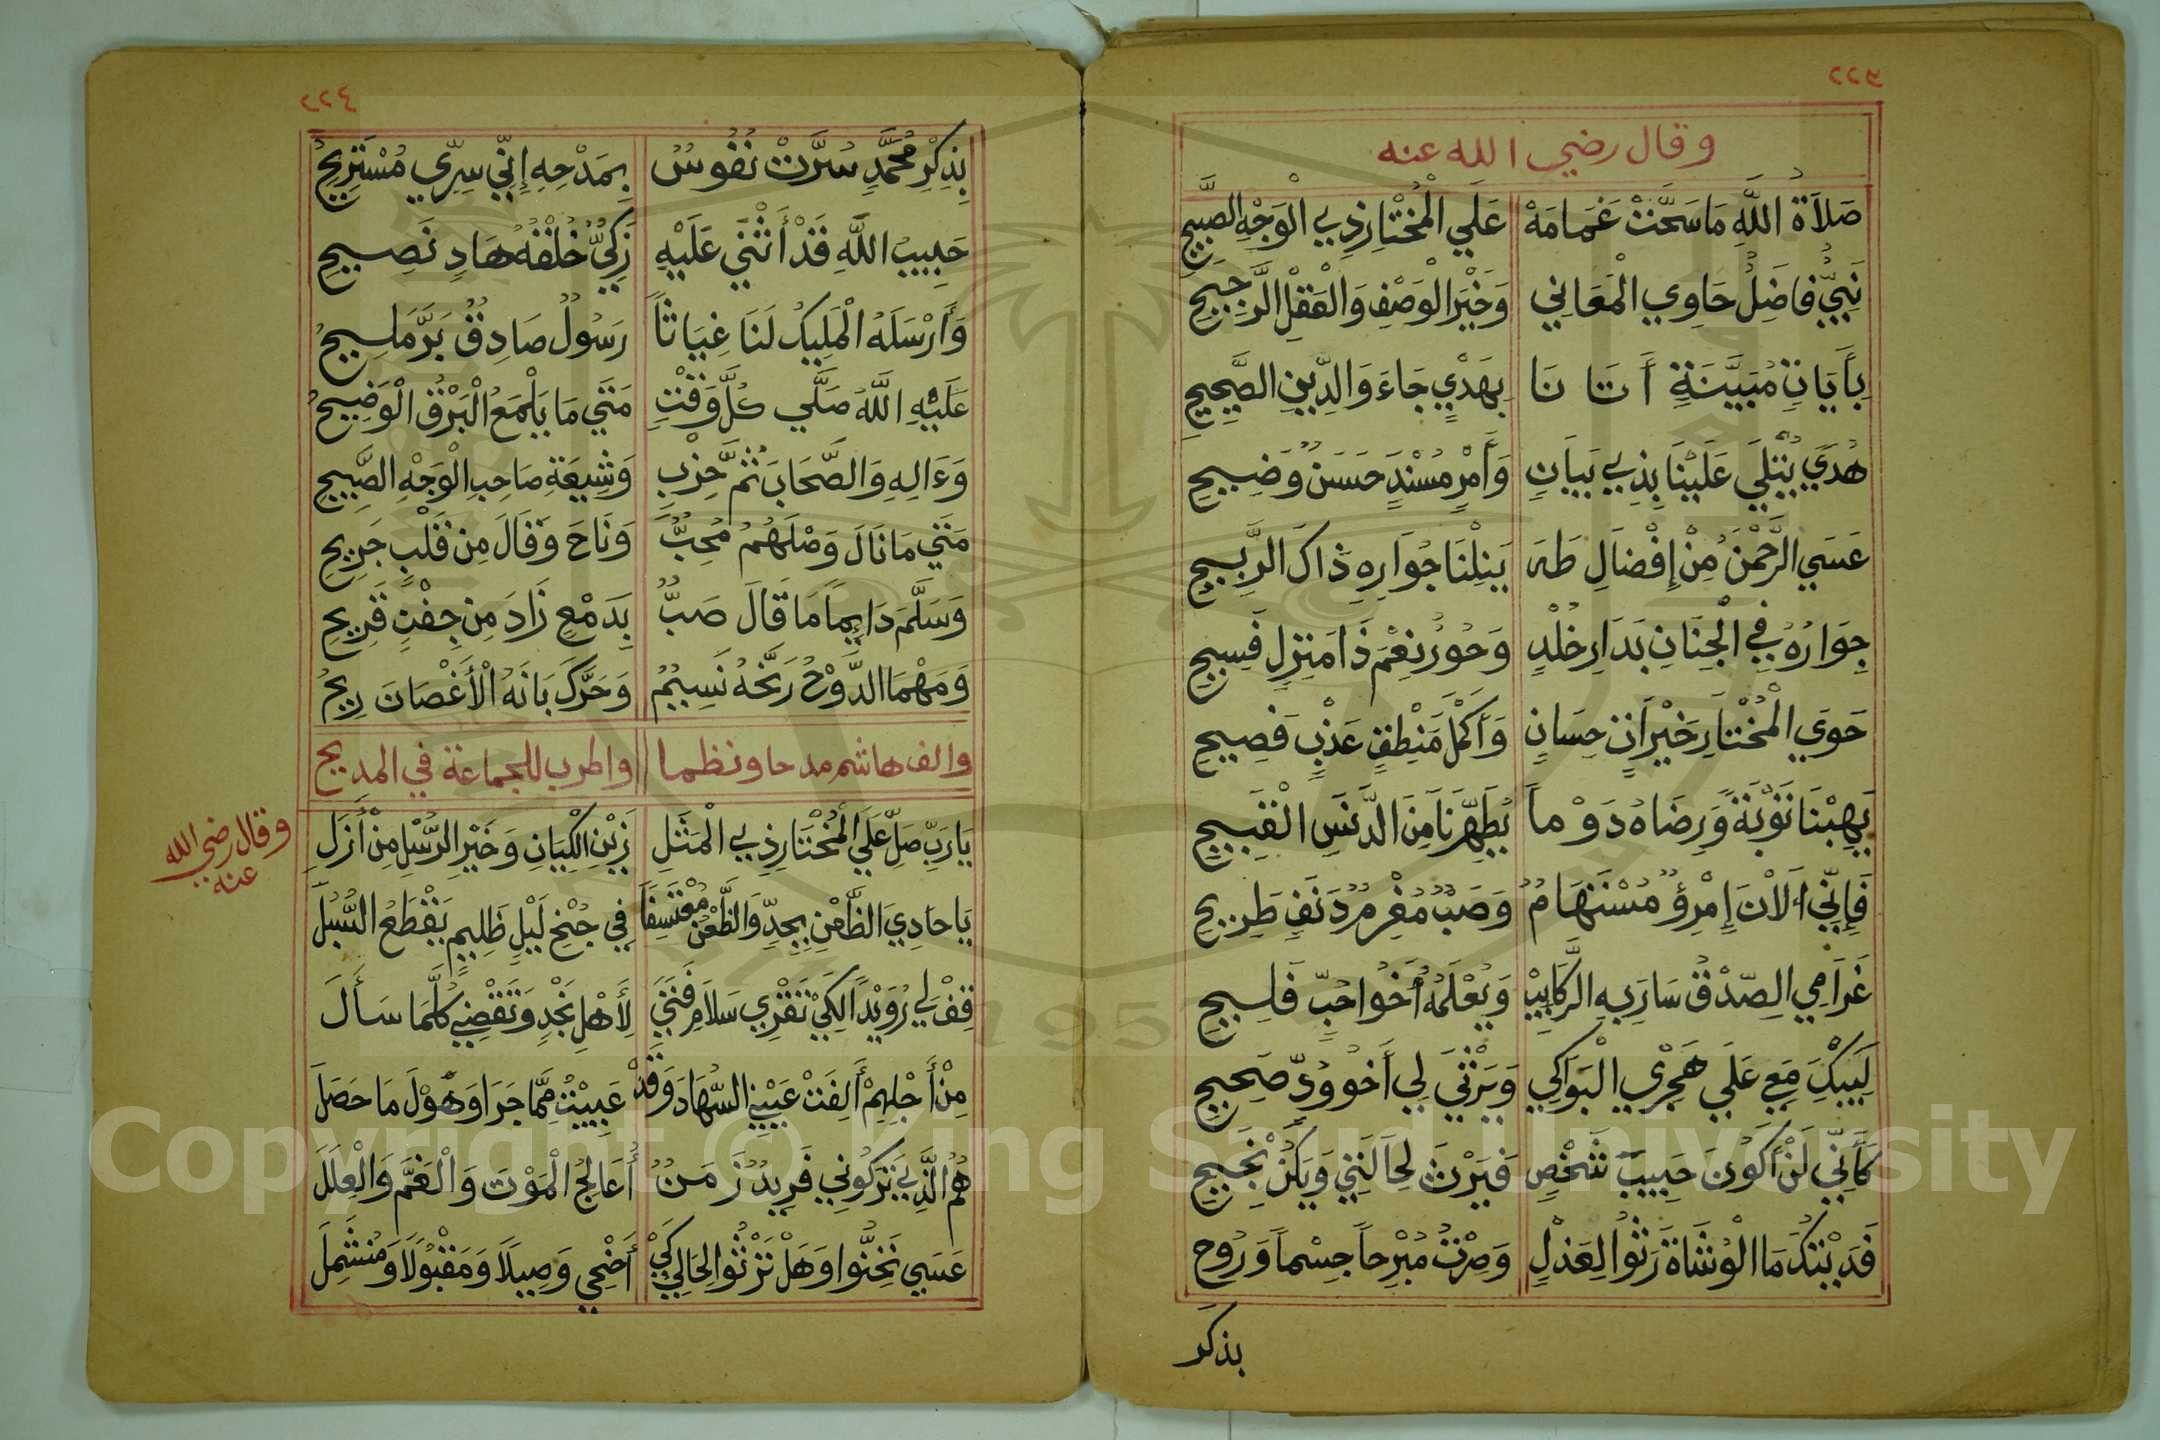 ٢٢٣
وقال رضي الله عنه
صَلَاةُ اللَّهِ مَا سَحَّتْ غَمَامَهْ عَلَي الْمُخْتَارِ ذِي الْوَجْهِ الصَّبِيحِ
نَبِيٌّ فَاضِلٌ حَاوِي الْمَعَانِي وَخَيْرِ الْوَصْفِ وَالْعَقْلِ الرَّجِيحِ
بِأَيَاتٍ مُبَيَّنَةٍ أَتَانَا بِهَدْيٍ جَاءَ وَالدِّينِ الصَّحِيحِ
هُدَي يُتْلَي عَلَيْنَا بِذِي بَيَانٍ وَأَمْرٍ مُسْنَدٍ حَسَنٌ وَضِيحِ
عَسَي الرَّحْمٰنُ مِنْ إِفْضَالِ طَهَ يَنِلْنَا جُوَارِهِ ذَاكَ الرَّبِيحِ
جِوَارُهُ فِي الْجِنَانِ بَدَارِ خُلْدٍ وَحُورٌ نِعْمَ ذَا مَنْزِلٍ فَسِيحِ
حَوَي الْمُخْتَارَ خَيْرَاتٍ حِسَانٍ وَأَكْمَلَ مَنْطِقٍ عَذْبٍ فَصِيحِ
يَهِبْنَا تَوْبَةً وَرِضَاهُ دَوْماً يُطَهِّرْنَا مِنَ الدَّنَسِ الْقَبِيحِ
فَإِنِّي أَلْاٰنَ إِمْرِؤٌ مُسْتَهَامٌ وَصَبٌّ مُغْرِمٌ دَنَفٍ طَرِيحِ
غَرَامِي الصِّدْقُ سَارَ بِهِ الرَّكَايِبْ وَيُعْلَمُهُ أَخُوا حُبِّ قَلِيحِ
لَيَبْكَ مَعِي عَلَي هَجْرِي الْبَوَاكِي وَيَرْثَي لِي أَخُو وُدٍّ صَحِيحِ
كَأَنِّي لَنْ أَكُونَ حَبِيبَ شَخْصٍ فَيَرْثَ لِحَالَتِي وَيَكُنْ نَجِيحِ
قَدَ يْتُكُمَا الْوُشَاةَ رَثُوا لِعَذْلٍ وَصِرْتُ مُبْرِحاً جِسْماً وَرُوحِ
بذكر
٢٢٤
بِذِكْرِ مُحَمَّدٍ سُرَّتْ نُفُوسٌ بِمَدْحِهِ إِنِّي سِرِّي مُسْتَرِيحِ
حَبِيبُ اللَّهِ قَدْ أَثْنَي عَلَيْهِ زَكِيٌّ خُلْقُهُ هَادٍ نَصِيحِ
وَأَرْسَلَهُ الْمَلِيكُ لَنَا غِيَاثاً رَسُولٌ صَادِقٌ بَرٌّ مَلِيحُ
عَلَيْهِ اللَّهُ صَلَّي كُلَّ وَقْتٍ مَتَي مَا يَلْمَعُ الْبَرْقُ الْوَضِيحُ
وَءَالِهِ وَالصَّحَابَ ثُمَّ حِزْبِ وَشِيعَةِ صَاحِبِ الْوَجْهِ الصَّبِيحِ
مَتَي مَا نَالَ وَصْلَهُمُ مُحِبٌّ وَنَاحَ وَقَالَ مِنْ قَلْبٍ جَرِيحِ
وَسَلَّمَ دَايِماً مَا قَالَ صَبٌّ بِدَمْعٍ زَادَ مِنْ جِفْنٍ قَرِيحِ
وَمَهْمَا الدَّوْحُ رَنَّحَهُ نَسِيمٌ وَحَرَّكَ بَانَهُ الْأَغْصَانَ رِيحُ
والف هاشم مدحا ونظما واطرب للجماعة في المديح
وقال رضي الله
عنه
يَا رَبِّ صَلِّ عَلَي الْمُخْتَارِ ذِي الْمَثَلِ زَيْنِ الْكِيَانِ وَخَيْرِ الرُّسْلِ مِنْ أَزَلِ
يَا حَادِيَ الظَّعْنِ بِجِدِّ وَالظَّعْنُ مُعْتَسِفاً فِي جُنْحِ لَيْلِ ظَلِيمٍ يَقْطَعُ السُّبُلَ
قِفْ لِي رُوَيْداً لِكَيْ تَقْرِي سَلَامَ فَتَي لِأَهْلِ نَجْدٍ وَتَقْضِي كُلَّمَا سَأَلَ
مِنْ أَجْلِهِمْ أَلِفَتْ عَيْنِي السُّهَادَ وَقَدْ عَيِيْتُ مِمَّا جَرَا وَهَوْلَ مَا حَصَلَ
هُمُ الَّذِي يَتْرَكُونِي فَرِيدُ زَمَنٌ أُعَالِجُ الْمَوْتَ وَالْغَمَّ وَالْعِلَلَ
عَسَي تَحِنُّوا وَهَلْ تَرْثُوا لِحَالِي كَيْ أَضْحِي وَصِيلَا وَمَقْبُولَا وَمُنْشَمِلَ
Copyright © King Saud University